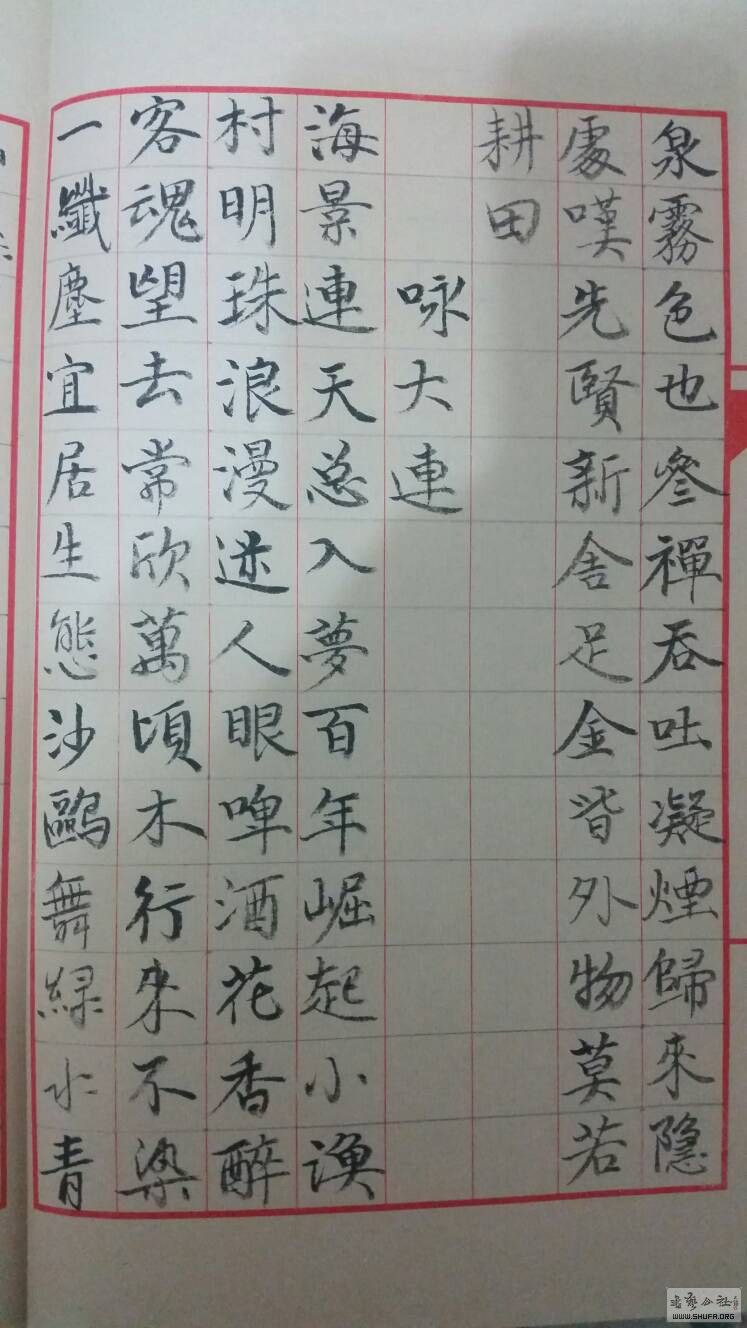 泉霧色也參禪吞吐凝煙歸來隱
處嘆先賢新舍足金皆外物莫若
耕田
咏大連
海景連天总入夢百年崛起小漁
村明珠浪漫迷人眼啤酒花香醉
客魂望去常欣萬頃木行來不染
一纖塵宜居生態沙鷗舞綠水青
WWW.SHUFA.ORG